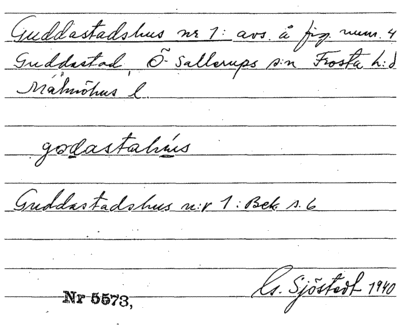 Guddastadshus nr 1: avs. å fig. num. 4
Guddastad, Ö. Sallerups s:n Frosta h:d
Malmöhus l.
godastahus
Guddastadshus n:r 1: Bek. s. 6
Nr 5573,
Cs. Sjöstedt 1940